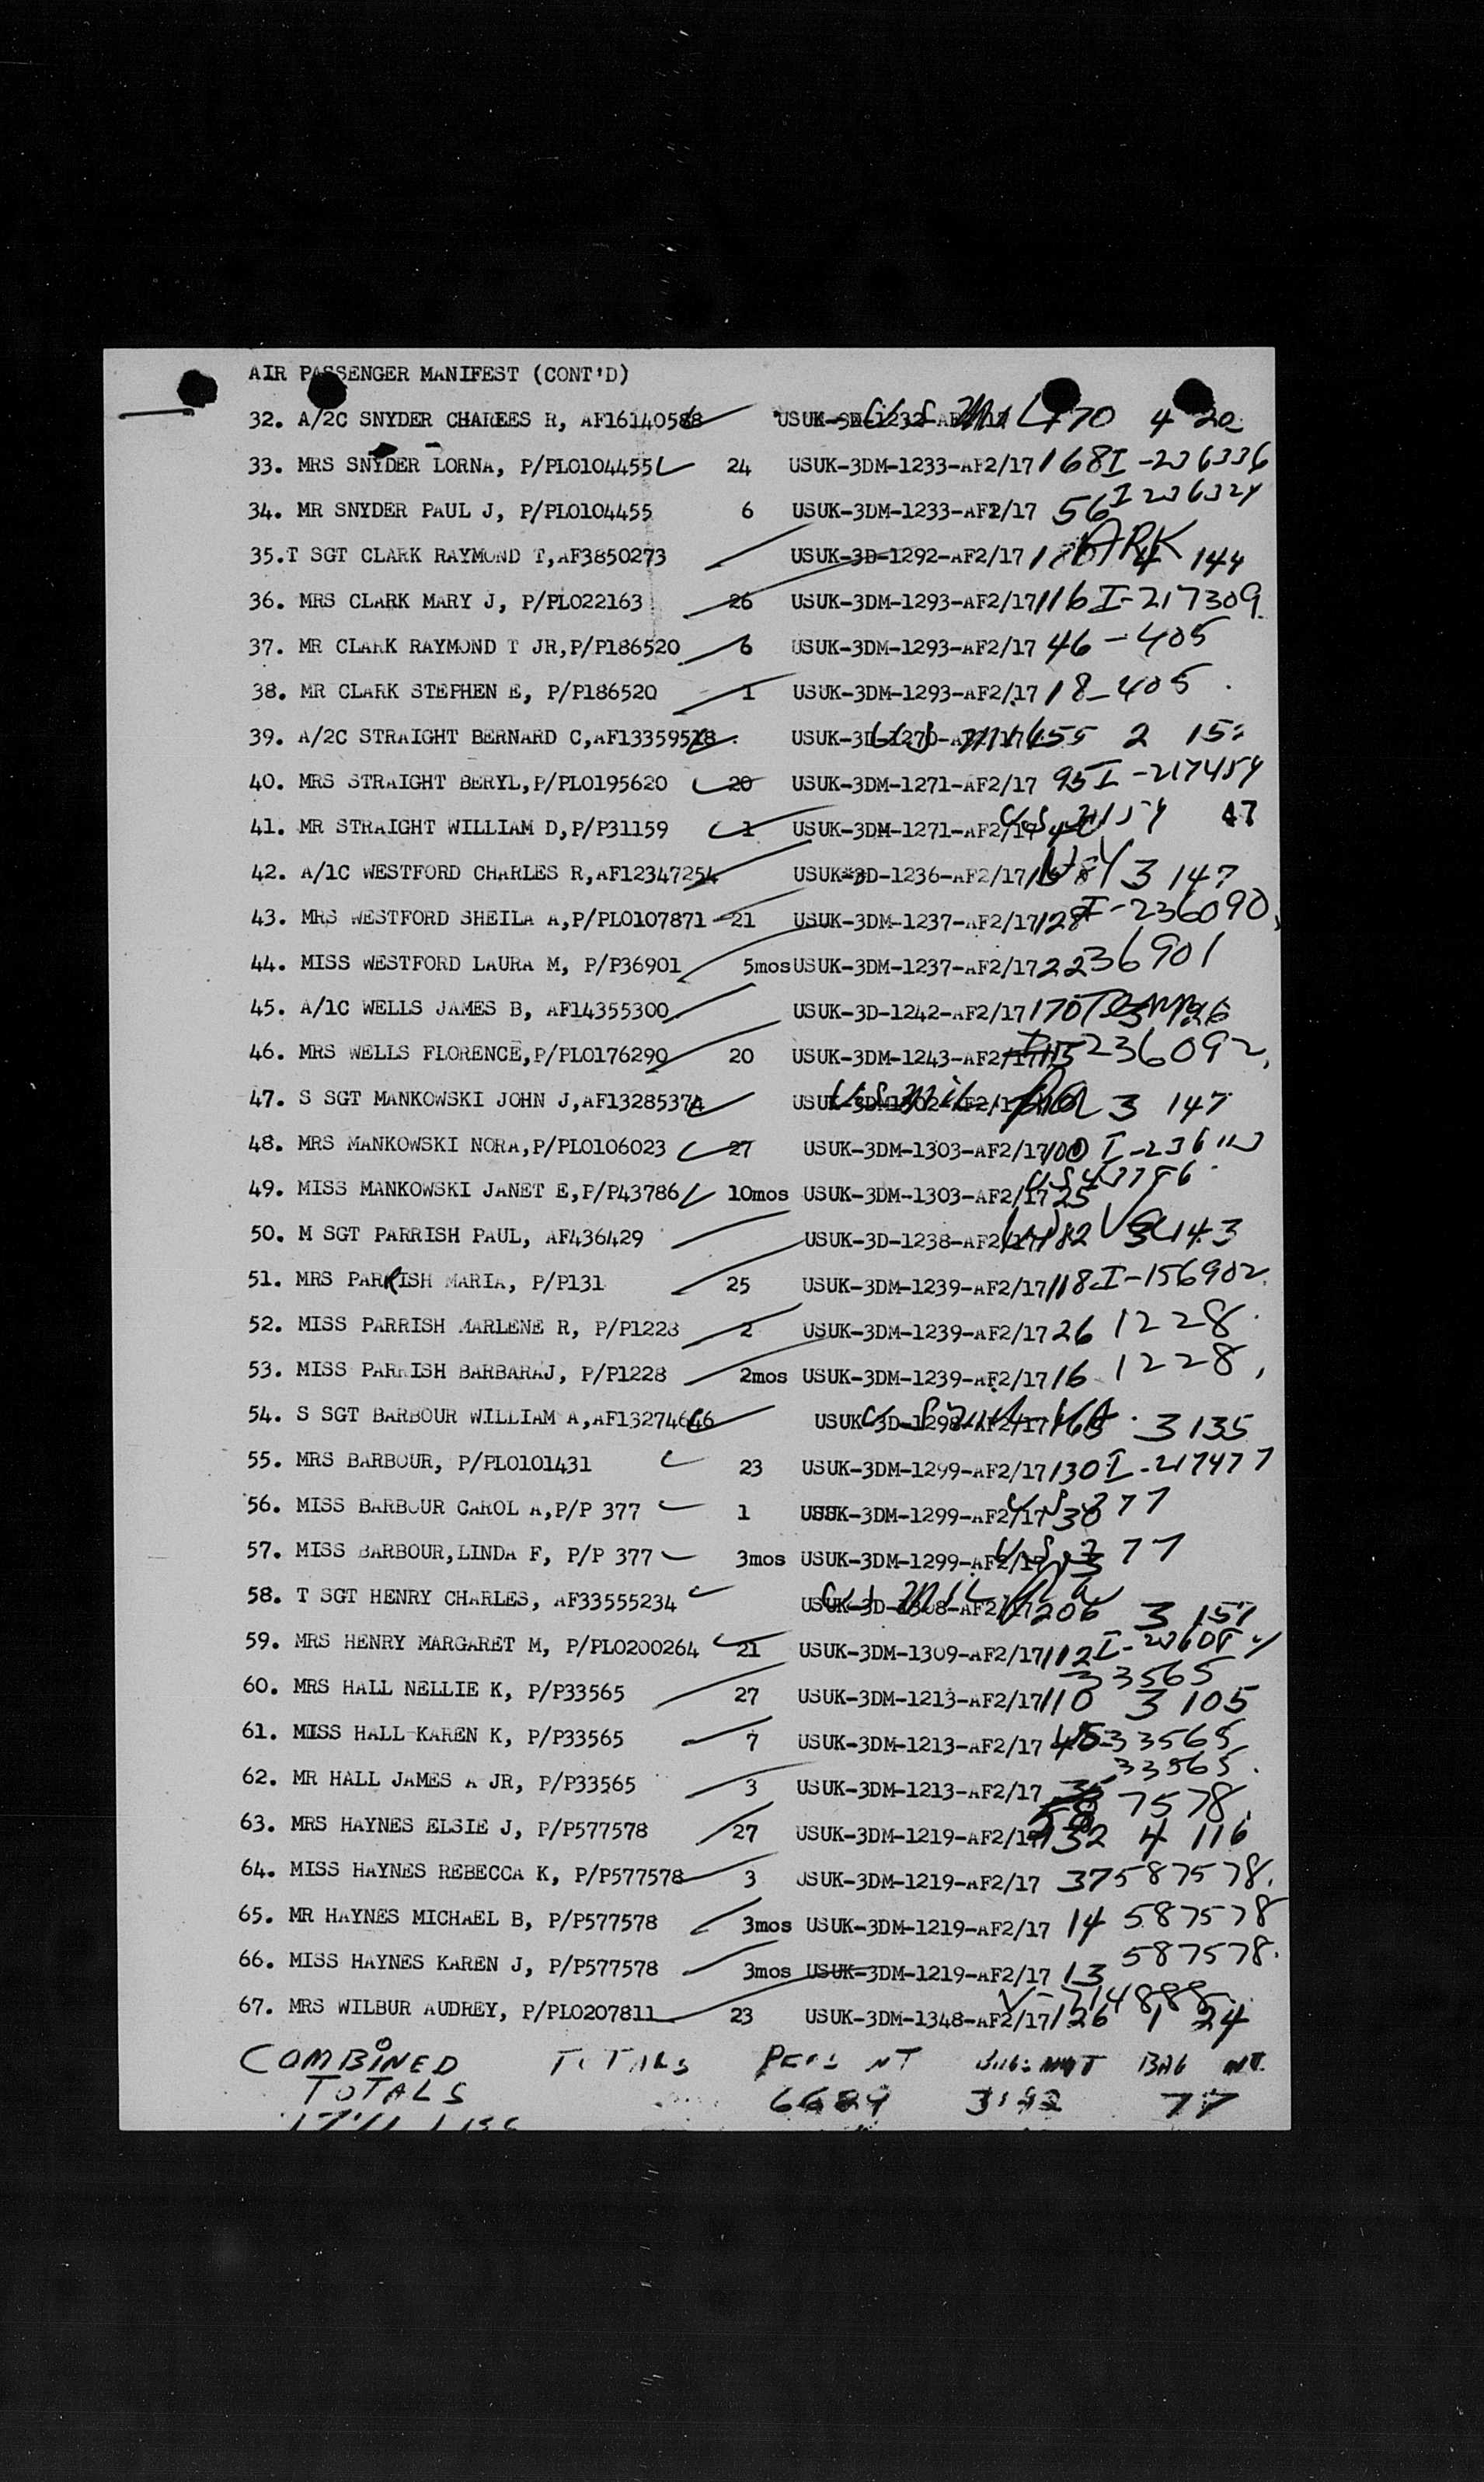 AIR PASSENGER MANIFEST (CONT'D)
32. A/2C SNYDER CHARLES R, AF16140588 USUK-3D-1232-AF2/17 170 4 
33. MRS SNYDER LORNA, P/PLO104455 24 USUK-3DM-1233-AF2/17 168 I-236336
34. MR SNYDER PAUL J, P/PLO104455 6 USUK-3DM-1233-AF2/17 56 I 236324
35.T SGT CLARK RAYMOND T,AF3850273 USUK-3D-1292-AF2/17 ARK 4 144
36. MRS CLARK MARY J, P/PLO22163 26 USUK-3DM-1293-AF2/17 116 I-217309
37. MR CLARK RAYMOND T JR,P/P186520 6 USUK-3DM-1293-AF2/17 46 -405
38. MR CLARK STEPHEN E, P/P186520 1 USUK-3DM-1293-AF2/17 18-405
39. A/2C STRAIGHT BERNARD C,AF13359518 USUK-3D-1270-AF2/17 155 2
40. MRS STRAIGHT BERYL,P/PLO195620 20 USUK-3DM-1271-AF2/17 95 I-217459
41. MR STRAIGHT WILLIAM D,P/P31159 1 USUK-3DM-1271-AF2/17 47
42. A/1C WESTFORD CHARLES R,AF12347254 USUK-3D-1236-AF2/17 NY 3 147
43. MRS WESTFORD SHEILA A,P/PLO107871 21 USUK-3DM-1237-AF2/17 128 I-236090
44. MISS WESTFORD LAURA M, P/P36901 5mos USUK-3DM-1237-AF2/17 22 36901
45. A/1C WELLS JAMES B, AF14355300 USUK-3D-1242-AF2/17 170 TENN
46. MRS WELLS FLORENCE,P/PLO176290 20 USUK-3DM-1243-AF2/17 115 236092
47. S SGT MANKOWSKI JOHN J,AF13285374 US MIL PA 3 147
48. MRS MANKOWSKI NORA,P/PLO106023 27 USUK-3DM-1303-AF2/17 100 I-236
49. MISS MANKOWSKI JANET E,P/P43786 10mos USUK-3DM-1303-AF2/17 25 US 43786
50. M SGT PARRISH PAUL, AF436429 USUK-3D-1238-AF2/17 182 3 143
51. MRS PARRISH MARIA, P/P131 25 USUK-3DM-1239-AF2/17 118 I-156902
52. MISS PARRISH MARLENE R, P/P1228 2 USUK-3DM-1239-AF2/17 26 1228
53. MISS PARRISH BARBARAJ, P/P1228 2mos USUK-3DM-1239-AF2/17 16 1228
54. S SGT BARBOUR WILLIAM A,AF13274646 USUK-3D-1298-AF2/17 165 3 135
55. MRS BARBOUR, P/PLO101431 23 USUK-3DM-1299-AF2/17 130 I-217477
56. MISS BARBOUR CAROL A,P/P 377 1 USUK-3DM-1299-AF2/17 30 US 377
57. MISS BARBOUR,LINDA F, P/P 377 3mos USUK-3DM-1299-AF2/17 US 377
58. T SGT HENRY CHARLES, AF33555234 USUK-3D-1308-AF2/17 206 US MIL PA 3 157
59. MRS HENRY MARGARET M, P/PLO200264 21 USUK-3DM-1309-AF2/17 112
60. MRS HALL NELLIE K, P/P33565 27 USUK-3DM-1213-AF2/17 110 33565 3 105
61. MISS HALL KAREN K, P/P33565 7 USUK-3DM-1213-AF2/17 45 33565
62. MR HALL JAMES A JR, P/P33565 3 USUK-3DM-1213-AF2/17 33565
63. MRS HAYNES ELSIE J, P/P577578 27 USUK-3DM-1219-AF2/17 132 587578 4 116
64. MISS HAYNES REBECCA K, P/P577578 3 USUK-3DM-1219-AF2/17 37 587578
65. MR HAYNES MICHAEL B, P/P577578 3mos USUK-3DM-1219-AF2/17 14 587578
66. MISS HAYNES KAREN J, P/P577578 3mos USUK-3DM-1219-AF2/17 13 587578
67. MRS WILBUR AUDREY, P/PLO207811 23 USUK-3DM-1348-AF2/17 126 1 24
COMBINED TOTALS PERS WT BAG WT BAG
TOTALS 77